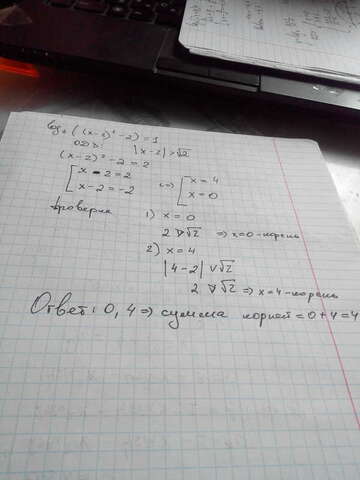 log₂((x-2)²-2)=1
ОДЗ: |x-2|>√2
(x-2)²-2=2
[x-2=2 <=> [x=4
[x-2=-2 [x=0
Проверка 1) x=0
2>√2 => x=0-корень
2) x=4
|4-2| ∨ √2
2 > √2 => x=4-корень
Ответ: 0, 4 => сумма корней=0+4=4